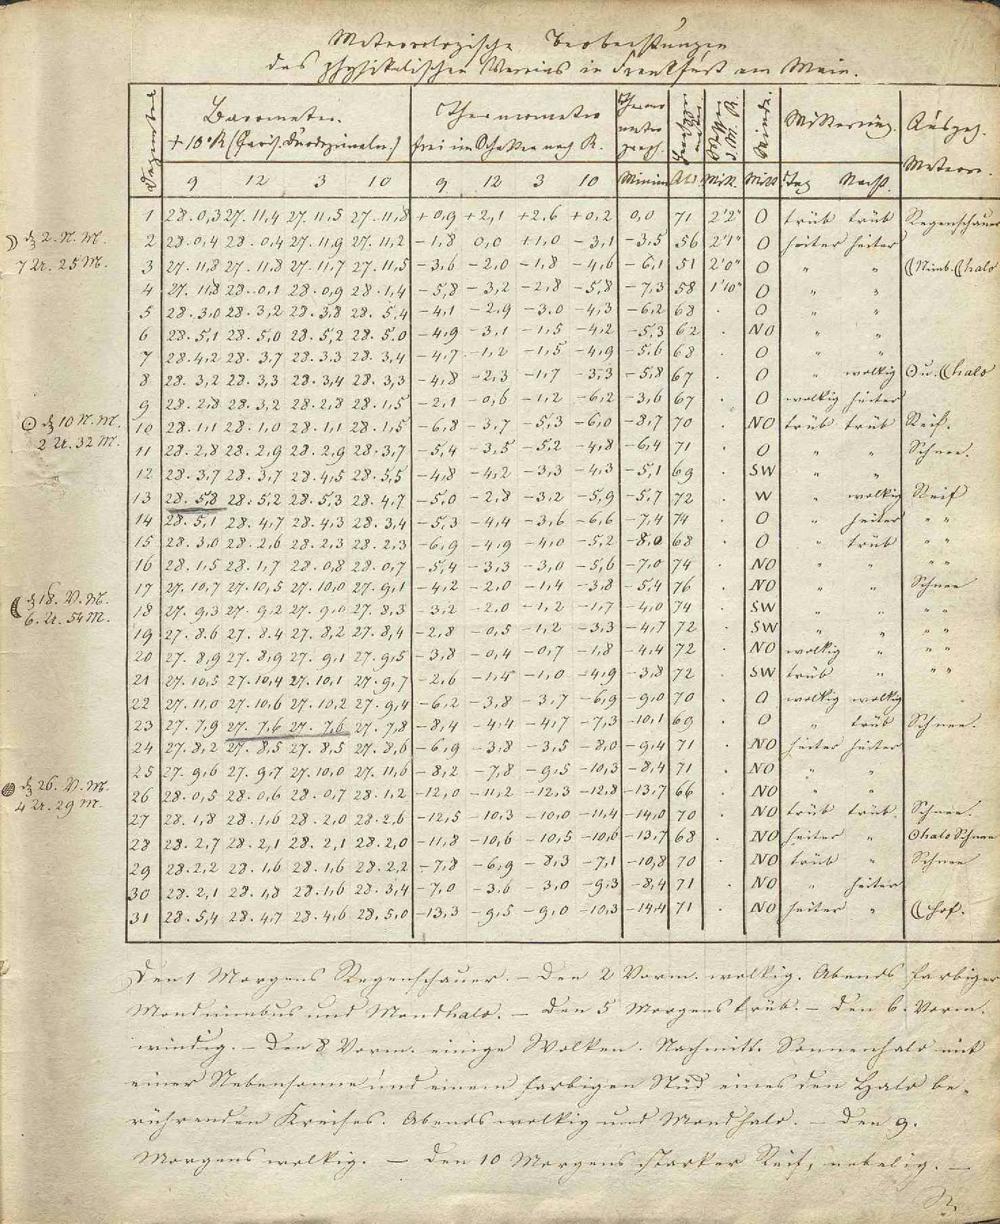 Meteorologische Beobachtungen
des physikalischen Vereins in Frankfurt am Main.
Dezember Barometer. Thermometer Thermometrograph. Winde. Witterung. Ausgez. Meteore.
+10°R (Paris. Duodezimalen.) frei im Schatten nach R.
9 12 3 10 9 12 3 10 Minim. Mitt. Mitt. Tag Nacht.
1 28.0,3 27.11,4 27.11,5 27.11,8 +0,9 +2,1 +2,6 +0,2 0,0 71 2'2" O trüb trüb Regenschauer
☽ d. 2. N. M. 2 28.0,4 28.0,4 27.11,9 27.11,2 -1,8 0,0 +1,0 -3,1 -3,5 56 2'1" O heiter heiter
7 U. 25 M. 3 27.11,8 27.11,8 27.11,7 27.11,5 -3,6 -2,0 -1,8 -4,6 -6,1 51 2'0" O " " ☾Nimb. ☾halo
4 27.11,8 28.0,1 28.0,9 28.1,4 -5,8 -3,2 -2,8 -5,8 -7,3 58 1'10" O " "
5 28.3,0 28.3,2 28.3,8 28.5,4 -4,1 -2,9 -3,0 -4,3 -6,2 68 . O " "
6 28.5,1 28.5,0 28.5,2 28.5,0 -4,9 -3,1 -1,5 -4,2 -5,3 62 . NO " "
7 28.4,2 28.3,7 28.3,3 28.3,4 -4,7 -1,2 -1,5 -4,9 -5,6 68 . O " "
8 28.3,2 28.3,3 28.3,4 28.3,3 -4,8 -2,3 -1,7 -3,3 -5,8 67 . O " wolkig ☉ u. ☾halo
9 28.2,8 28.3,2 28.2,8 28.1,5 -2,1 -0,6 -1,2 -6,2 -3,6 67 . O wolkig heiter
○ d. 10 N. M. 10 28.1,1 28.1,0 28.1,1 28.1,5 -6,8 -3,7 -5,3 -6,0 -8,7 70 . NO trüb trüb Reif.
2 U. 32 M. 11 28.2,8 28.2,9 28.2,9 28.3,7 -5,4 -3,5 -5,2 -4,8 -6,4 71 . O " " Schnee.
12 28.3,7 28.3,7 28.4,5 28.5,5 -4,8 -4,2 -3,3 -4,3 -5,1 69 . SW " "
13 28.5,8 28.5,2 28.5,3 28.4,7 -5,0 -2,8 -3,2 -5,9 -5,7 72 . W " wolkig Reif
14 28.5,1 28.4,7 28.4,3 28.3,4 -5,3 -4,4 -3,6 -6,6 -7,4 74 . O " heiter " "
15 28.3,0 28.2,6 28.2,3 28.2,3 -6,9 -4,9 -4,0 -5,2 -8,0 68 . O " trüb " "
16 28.1,5 28.1,7 28.0,8 28.0,7 -5,4 -3,3 -3,0 -5,6 -7,0 74 . NO " " " "
17 27.10,7 27.10,5 27.10,0 27.9,1 -4,2 -2,0 -1,4 -3,8 -5,4 76 . NO " " Schnee
☾ d. 18. V. M. 18 27.9,3 27.9,2 27.9,0 27.8,3 -3,2 -2,0 -1,2 -1,7 -4,0 74 . SW " " " "
6. U. 54 M. 19 27.8,6 27.8,4 27.8,2 27.8,4 -2,8 -0,5 -1,2 -3,3 -4,7 72 . SW " " " "
20 27.8,9 27.8,9 27.9,1 27.9,5 -3,8 -0,4 -0,7 -1,8 -4,4 72 . NO wolkig " " "
21 27.10,5 27.10,4 27.10,1 27.9,7 -2,6 -1,4 -1,0 -4,9 -3,8 72 . SW trüb " " "
22 27.11,0 27.10,6 27.10,2 27.9,4 -6,2 -3,8 -3,7 -6,9 -9,0 70 . O wolkig wolkig
23 27.7,9 27.7,6 27.7,6 27.7,8 -8,4 -4,4 -4,7 -7,3 -10,1 69 . O " trüb Schnee.
24 27.8,2 27.8,5 27.8,5 27.8,6 -6,9 -3,8 -3,5 -8,0 -9,4 71 . NO heiter heiter
25 27.9,6 27.9,7 27.10,0 27.11,6 -8,2 -7,8 -9,5 -10,3 -8,4 71 . NO " "
● d. 26. V. M. 26 28.0,5 28.0,6 28.0,7 28.1,2 -12,0 -11,2 -12,3 -12,8 -13,7 66 . NO " "
4 U. 29 M. 27 28.1,8 28.1,6 28.2,0 28.2,6 -12,5 -10,3 -10,0 -11,4 -14,0 70 . NO trüb trüb Schnee
28 28.2,7 28.2,1 28.2,1 28.2,0 -11,8 -10,6 -10,5 -10,6 -13,7 68 . NO heiter " ☉halo Schnee
29 28.2,2 28.1,6 28.1,6 28.2,2 -7,8 -6,9 -8,3 -7,1 -10,8 70 . NO trüb " Schnee
30 28.2,1 28.1,8 28.1,6 28.3,4 -7,0 -3,6 -3,0 -9,3 -8,4 71 . NO " heiter
31 28.5,4 28.4,7 28.4,6 28.5,0 -13,3 -9,5 -9,0 -10,3 -14,4 71 . NO heiter " ☾hof.
Den 1 Morgens Regenschauer. – Den 2 Vorm. wolkig. Abends farbiger
Mondnimbus und Mondhalo. – Den 5 Morgens trüb. – Den 6. Vorm.
windig. – Den 8 Vorm. einige Wolken. Nachmitt. Sonnenhalo mit
einer Nebensonne und einem farbigen Stück eines den Halo be-
rührenden Kreises. Abends wolkig und Mondhalo. – Den 9.
Morgens wolkig. – Den 10 Morgens starker Reif, nebelig. –